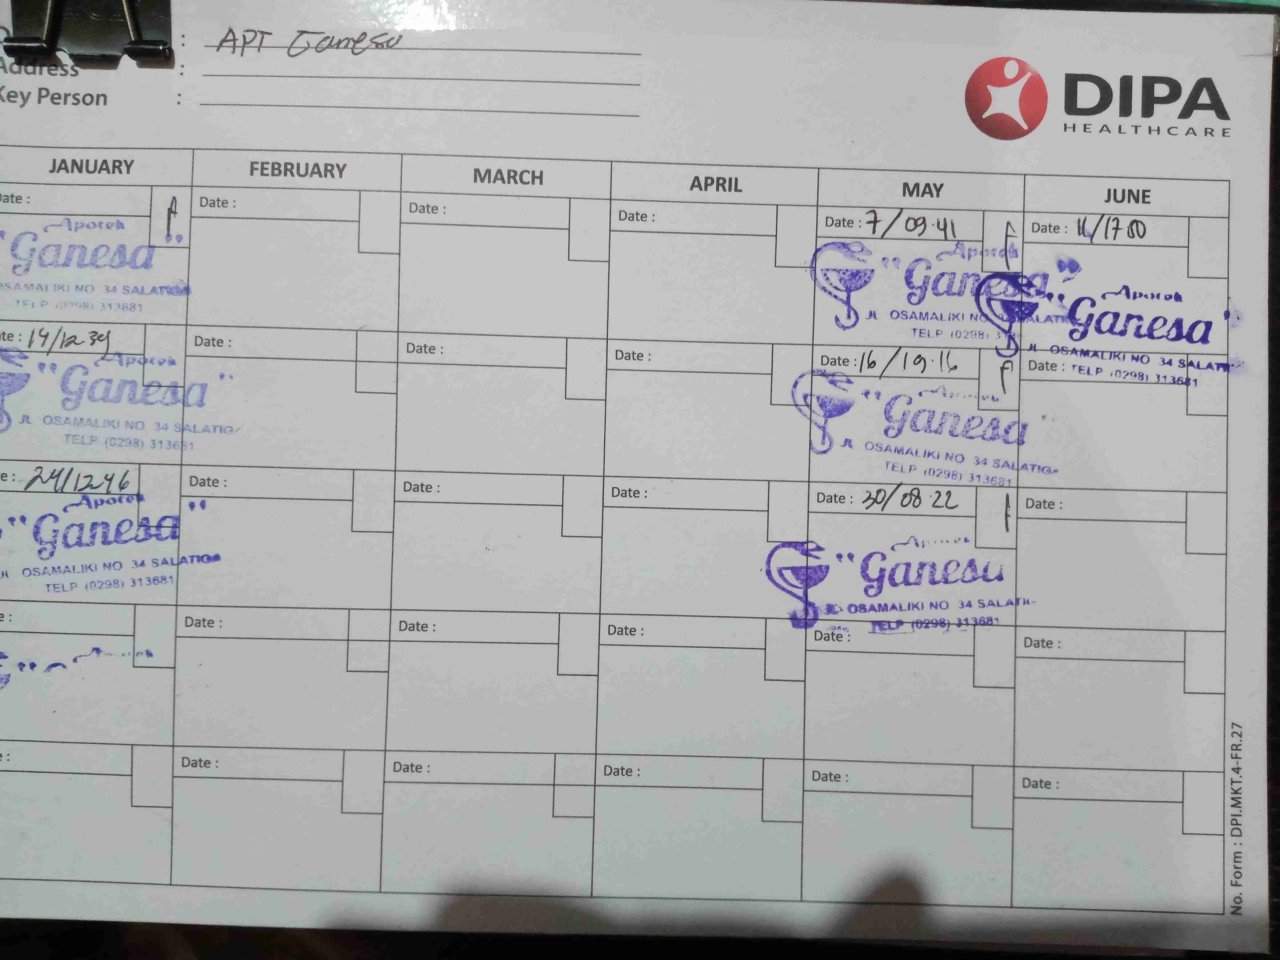 : APT Ganesa
Address :
Key Person :
DIPA
HEALTHCARE
JANUARY FEBRUARY MARCH APRIL MAY JUNE
Date : Date : Date : Date : Date : 7/09.41 Date : 11/1700
Apotek
"Ganesa"
OSAMALIKI NO 34 SALATIGA
TELP (0298) 313681
Apotek
"Ganesa"
JL OSAMALIKI NO 34 SALATIGA
TELP (0298) 313681
Apotek
"Ganesa"
JL OSAMALIKI NO 34 SALATIGA
TELP (0298) 313681
te : 14/12.34 Date : Date : Date : Date : 16/19.16 Date :
Apotek
"Ganesa"
JL OSAMALIKI NO 34 SALATIGA
TELP (0298) 313681
Apotek
"Ganesa"
JL OSAMALIKI NO 34 SALATIGA
TELP (0298) 313681
e : 24/12.46 Date : Date : Date : Date : 30/08.22 Date :
Apotek
"Ganesa"
JL OSAMALIKI NO 34 SALATIGA
TELP (0298) 313681
Apotek
"Ganesa
JL OSAMALIKI NO 34 SALATI
TELP (0298) 313681
e : Date : Date : Date : Date : Date :
Apotek
e : Date : Date : Date : Date : Date :
No. Form : DPI.MKT.4-FR.27